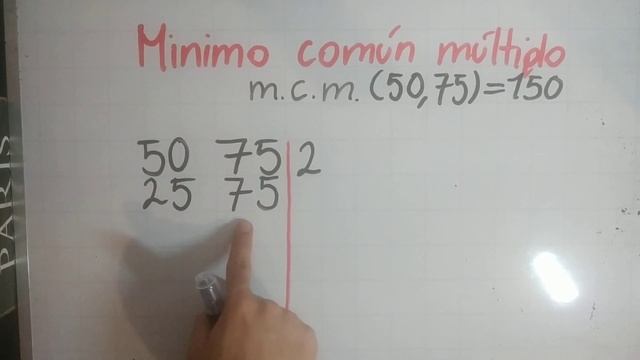 Minimo común múltiplo
m.c.m. (50,75)=150
50 75 2
25 75
PARIS